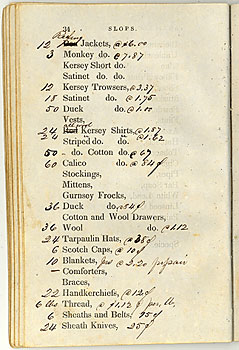 34 SLOPS.
12 Jackets, @ $6.00
3 Monkey do. @ 7.87
Kersey Short do.
Satinet do. do.
12 Kersey Trowsers, @ 3.37
18 Satinet do. @ 1.75
50 Duck do. @ 1.00
Vests,
24 Kersey Shirts, @ 1.87
24 Striped do. do. @ 1.62
50 do. Cotton do. @ 67
60 Calico do. @ 54¢
Stockings,
Mittens,
Gurnsey Frocks,
36 Duck do. @ 54¢
Cotton and Wool Drawers,
36 Wool do. @ 1.12
24 Tarpaulin Hats, @
6 Scotch Caps, @
10 Blankets, @ 3.20 pr pair
— Comforters,
Braces,
22 Handkerchiefs, @
6 lbs Thread, @ $1.12 ¢ per. lb.
6 Sheaths and Belts,
24 Sheath Knives, 25¢